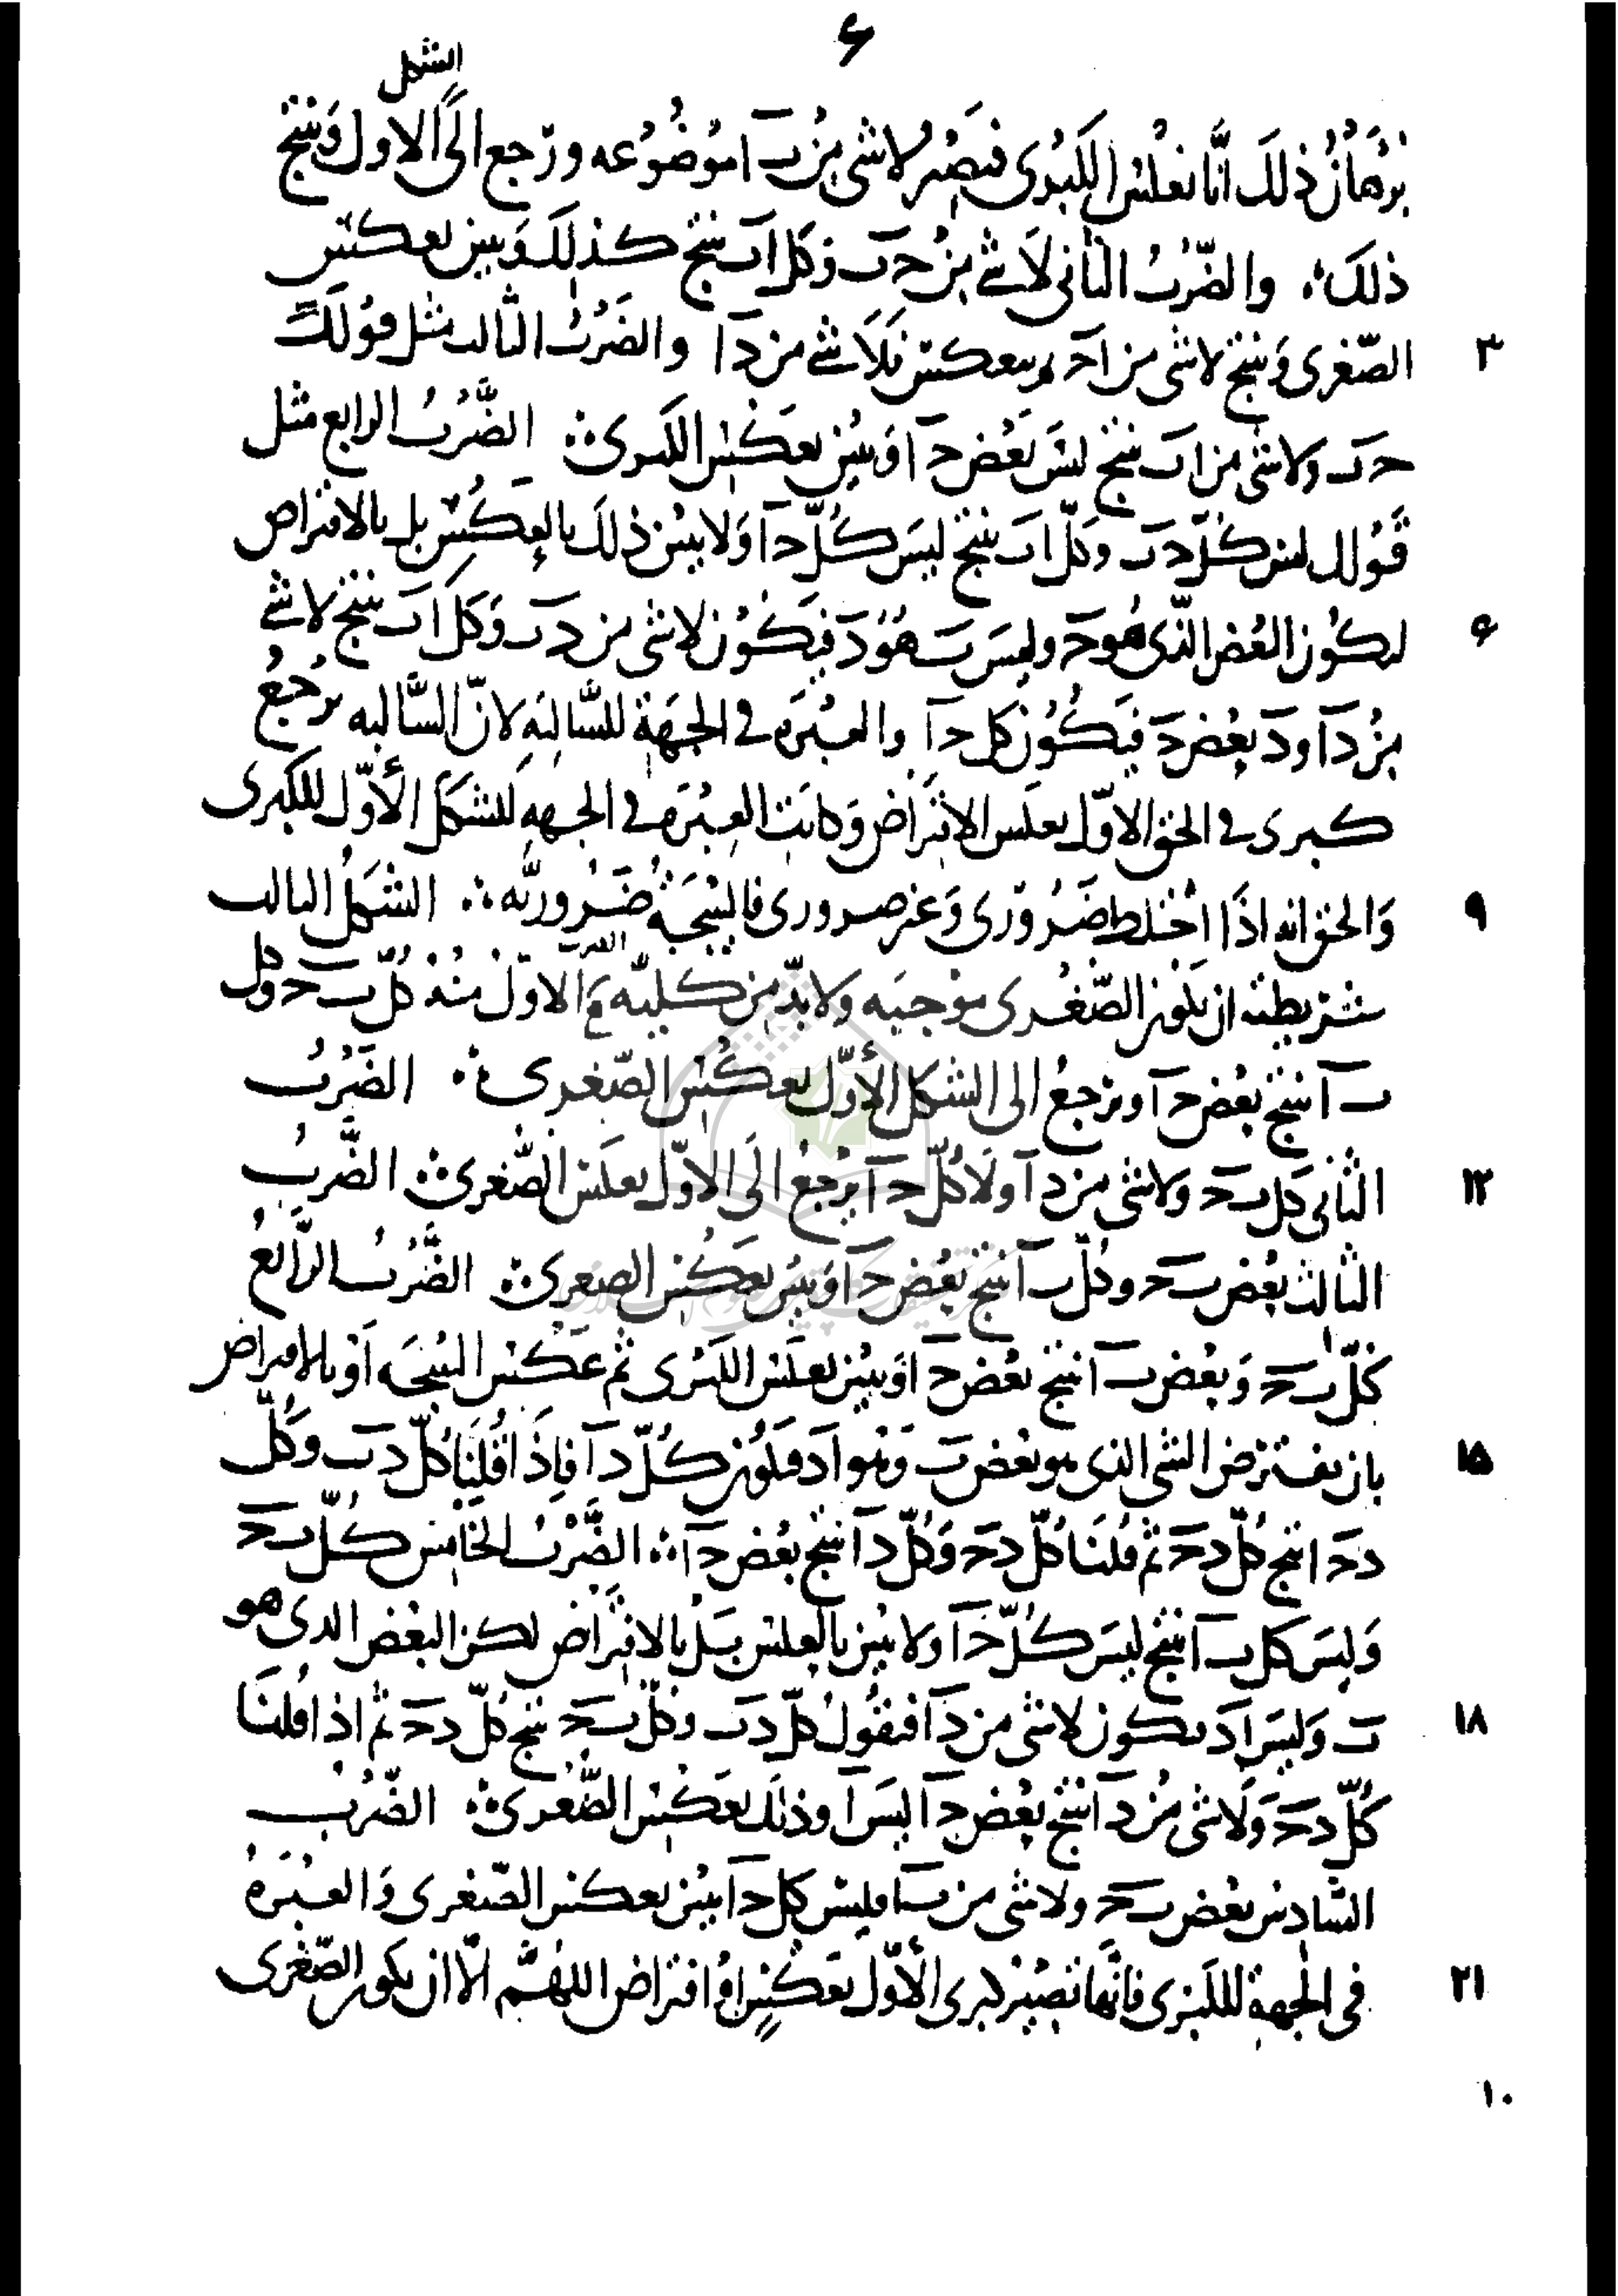 ۶
الشكل
برهان ذلك انا نعكس الكبرى فيصير لا شى من ب ا موضوعه ورجع الى الاول وينتج
ذلك ؞ والضرب الثانى لا شى من حـ ب وكل ا ب ينتج كذلك ويبين بعكس
الصغرى وينتج لا شى من ا حـ ثم ينعكس فلا شى من حـ ا والضرب الثالث مثل قولك
حـ ب ولا شى من ا ب ينتج ليس بعض حـ ا ويبين بعكس الكبرى ؞ الضرب الرابع مثل
قولك ليس كل حـ ب وكل ا ب ينتج ليس كل حـ ا ولا يبين ذلك بالعكس بل بالافتراض
ليكون البعض الذى هو حـ وليس ب هو د فيكون لا شى من د ب وكل ا ب ينتج لا شى
من د ا و د بعض حـ فيكون كل حـ ا والعبرة فى الجهة للسالبة لان السالبه ترجع
كبرى فى الحق الاول بعكس الافتراض وكانت العبرة فى الجهه للشكل الأول للكبرى
والحق انه اذا اختلط ضرورى وغير ضرورى فالنتيجة ضروريه ؞ الشكل الثالث
شريطته ان تكون الصغرى موجبه ولا بد من كليه الضرب الاول منه كل ب حـ وكل
ب ا ينتج بعض حـ ا ويرجع الى الشكل الأول بعكس الصغرى ؞ الضرب
الثانى كل ب حـ ولا شى من د ا ولا كل حـ ا يرجع الى الاول بعكس الصغرى ؞ الضرب
الثالث بعض ب حـ وكل ب ا ينتج بعض حـ ا ويبين بعكس الصغرى ؞ الضرب الرابع
كل ب حـ وبعض ب ا ينتج بعض حـ ا ويبين بعكس الكبرى ثم عكس النتيجه او بالافتراض
بان يفترض الشى الذى هو بعض ب وهو ا د فيكون كل د ا فاذا قلنا كل د ب وكل
د حـ انتج كل د حـ ثم قلنا كل د حـ وكل د ا ينتج بعض حـ ا ؞ الضرب الخامس كل ب حـ
وليس كل ب ا ينتج ليس كل حـ ا ولا يبين بالعكس بل بالافتراض ليكن البعض الذى هو
ب وليس ا د فيكون لا شى من د ا فنقول كل د ب وكل ب حـ ينتج كل د حـ ثم اذا قلنا
كل د حـ ولا شى من د ا ينتج بعض حـ ا ليس ا وذلك بعكس الصغرى ؞ الضرب
السادس بعض ب حـ ولا شى من ب ا فليس كل حـ ا يبين بعكس الصغرى والعبرة
فى الجهة للكبرى فانها تصير كبرى الأول بعكس او افتراض اللهم الا ان يكون الصغرى
۳
۶
۹
۱۲
۱۵
۱۸
۲۱
۱۰